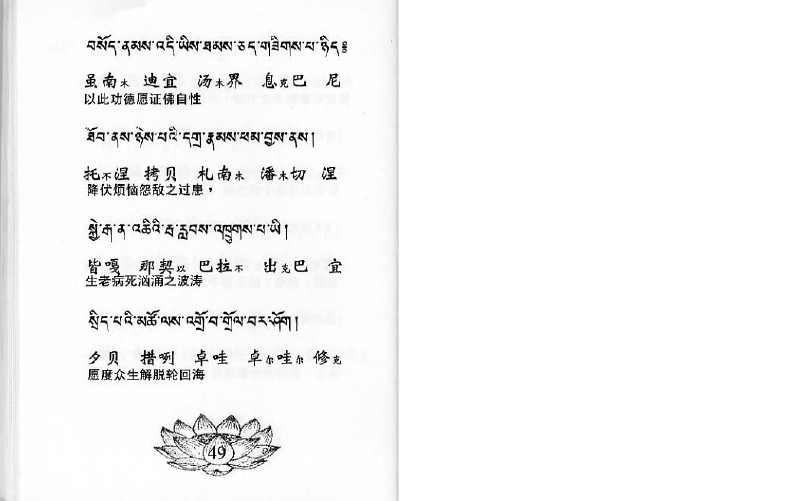 བསོད་ནམས་འདི་ཡིས་ཐམས་ཅད་གཟིགས་པ་ཉིད༔
虽南木 迪宜 汤木界 息克巴 尼
以此功德愿证佛自性
ཐོབ་ནས་ཉེས་པའི་དགྲ་རྣམས་ཕམ་བྱས་ནས།
托不涅 拷贝 札南木 潘木切 涅
降伏烦恼怨敌之过患，
སྐྱེ་རྒ་ན་འཆིའི་རྦ་རླབས་འཁྲུགས་པ་ཡི།
皆嘎 那契以 巴拉不 出克巴 宜
生老病死汹涌之波涛
སྲིད་པའི་མཚོ་ལས་འགྲོ་བ་གྲོལ་བར་ཤོག།
夕贝 措咧 卓哇 卓尔哇尔 修克
愿度众生解脱轮回海
49